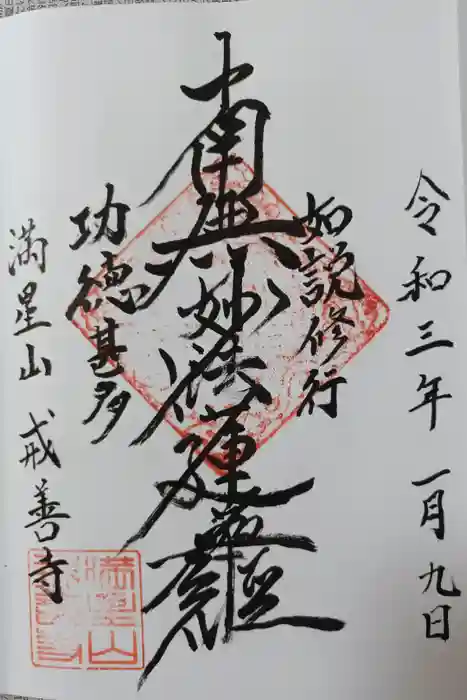 令和三年一月九日
如説修行
南無妙法蓮華経
功徳甚多
満星山 戒善寺